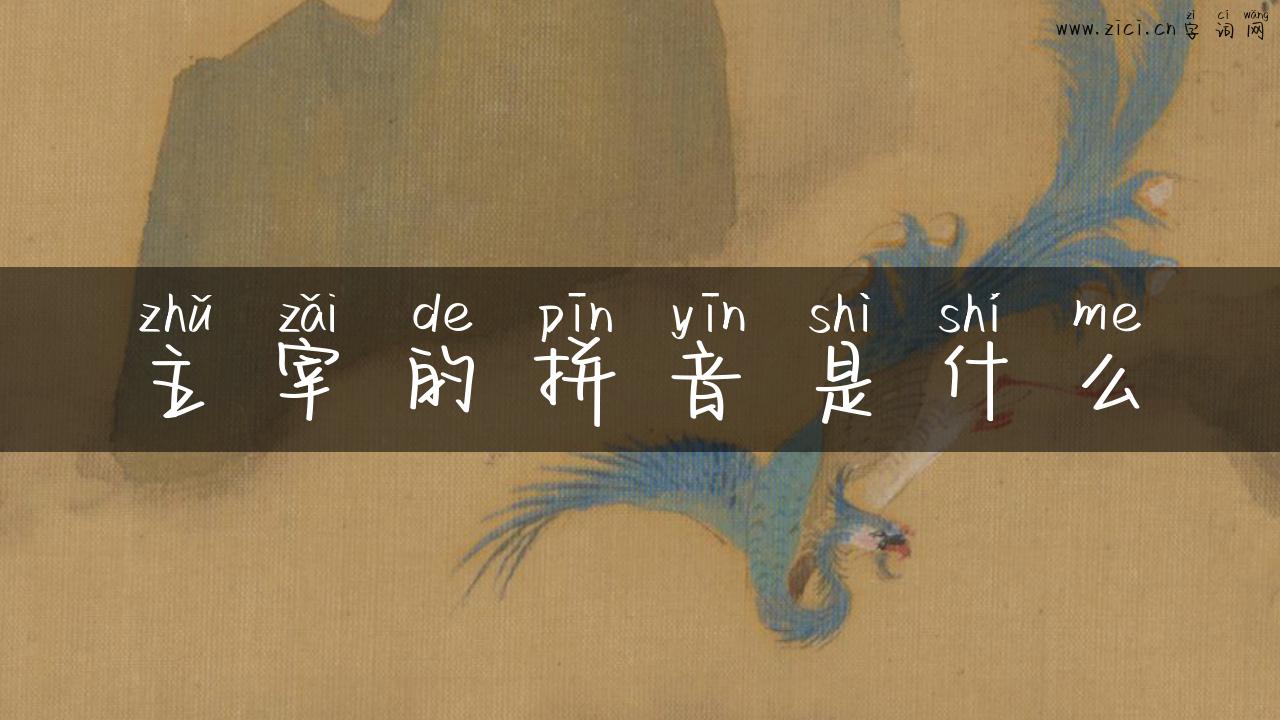 zì cí wǎng
www.zici.cn字词网
zhǔ zǎi de pīn yīn shì shí me
主宰的拼音是什么